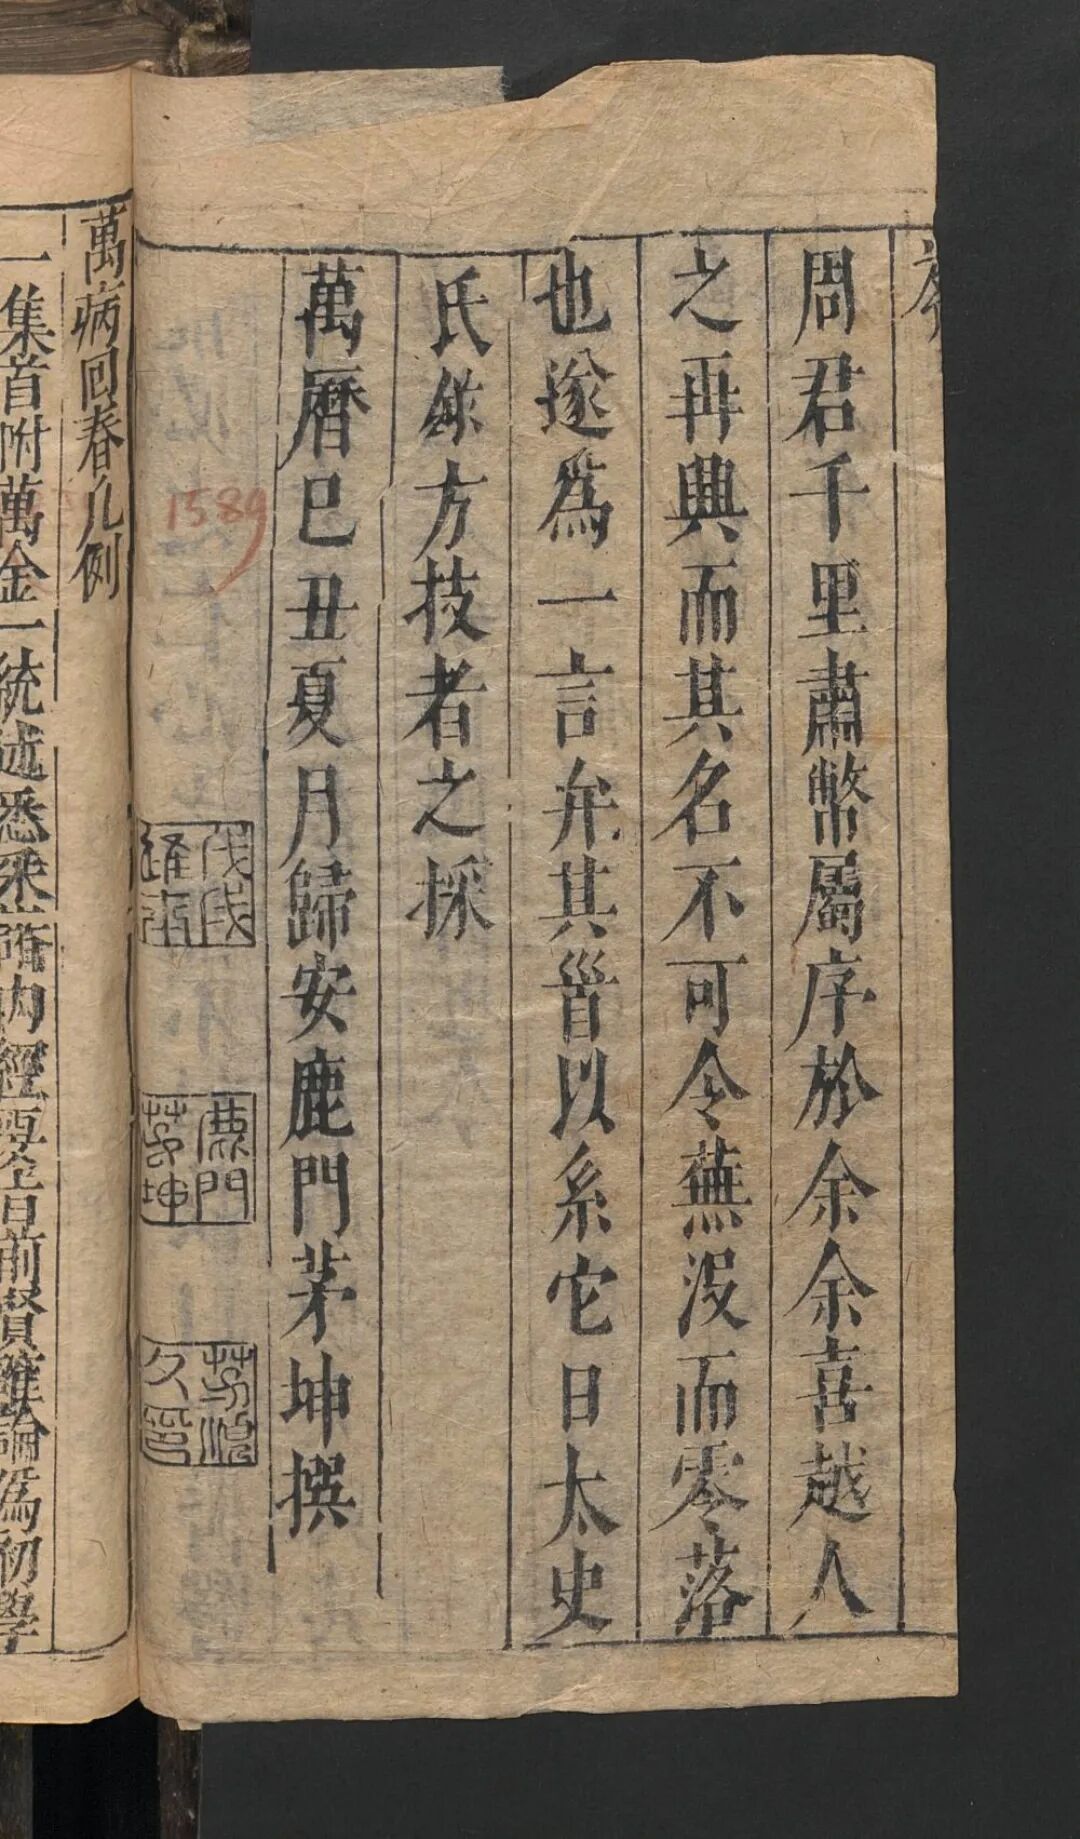 周君千里肅幣屬序於余余喜越人
之再興而其名不可令蕪没而零落
也遂爲一言弁其首以系它日太史
氏錄方技者之採
萬曆巳丑夏月歸安鹿門茅坤撰
1589
鹿門
茅坤
萬病回春凡例
一集首附萬金一統述悉采
內經要全旨前賢確論爲初學